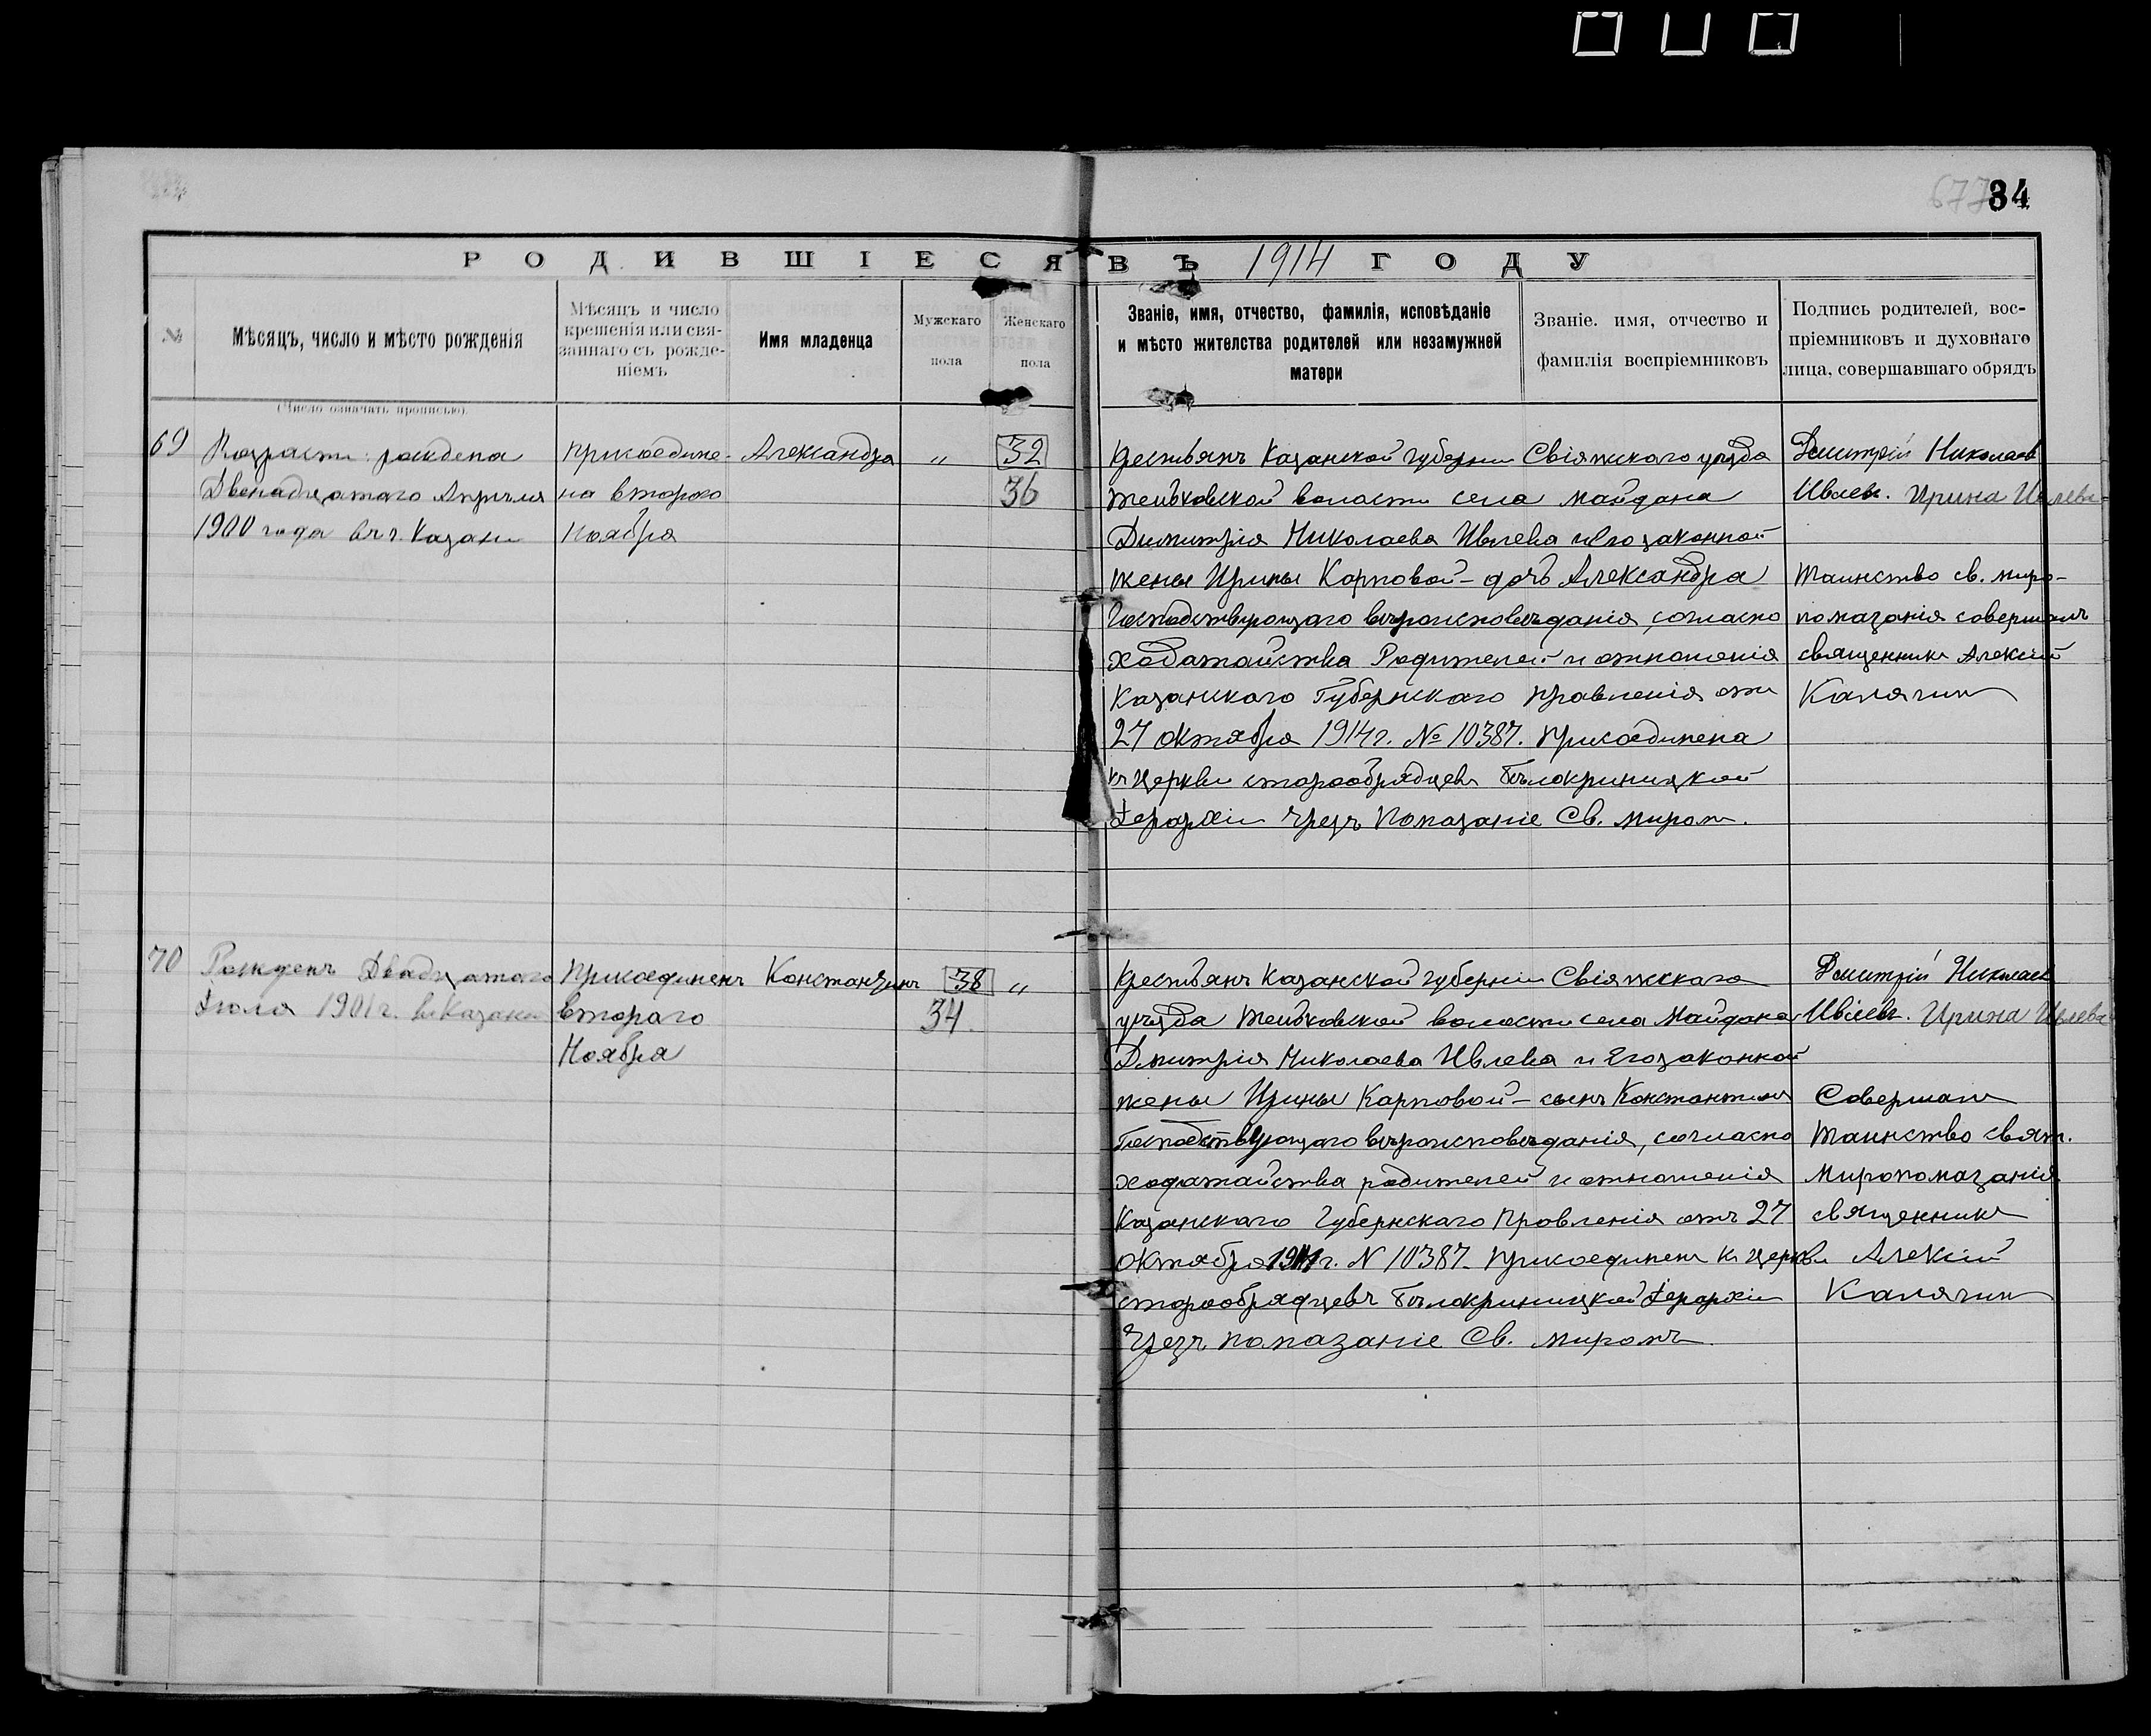 677 34
РОДИВШІЕСЯ ВЪ 1914 ГОДУ
№
Мѣсяцъ, число и мѣсто рожденія
(Число означать прописью).
Мѣсяцъ и число
крещенія или свя-
заннаго съ рожде-
ніемъ
Имя младенца
Мужскаго
пола
Женскаго
пола
Званіе, имя, отчество, фамилія, исповѣданіе
и мѣсто жителства родителей или незамужней
матери
Званіе. имя, отчество и
фамилія воспріемниковъ
Подпись родителей, вос-
пріемниковъ и духовнаго
лица, совершавшаго обрядъ
69
рождена
Двенадцатаго Апрѣля
1900 года въ г. Казани
присоедине-
на второго
Ноября
Александра
"
32
36
Крестьянъ Казанской губерніи Свіяжскаго уѣзда
волости села Майдана
Димитрія Николаева Ивлева и его законной
жены Ирины Карповой – дочь Александра
Господствующаго вѣроисповѣданія, согласно
ходатайства Родителей и отношенія
Казанскаго Губернскаго Правленія отъ
27 октября 1914 г. № 10387. присоединена
къ Церкви старообрядцевъ Бѣлокриницкой
Іерархіи чрезъ Помазаніе Св. миромъ.
Дмитрій Николаев
Ивлевъ. Ирина Ивлева
Таинство св. миро-
помазанія совершалъ
священникъ Алексій
Калягин
70
Рожденъ Двадцатаго
Іюля 1901 г. въ Казани
Присоединенъ
втораго
Ноября
Константинъ
38
34
"
Крестьянъ Казанской губерніи Свіяжскаго
уѣзда волости села Майдана
Дмитрія Николаева Ивлева и Его законной
жены Ирины Карповой – сынъ Константинъ
Господствующаго вѣроисповѣданія, согласно
ходатайства родителей и отношенія
Казанскаго Губернскаго Правленія отъ 27
Октября 1914 г. N 10387. Присоединенъ къ церкви
старообрядцевъ Бѣлокриницкой Іерархіи
Чрезъ помазаніе Св. миромъ
Дмитрій Николаев
Ивлевъ. Ирина Ивлева
Совершалъ
Таинство свят.
Миропомазанія
священникъ
Алексій
Калягин